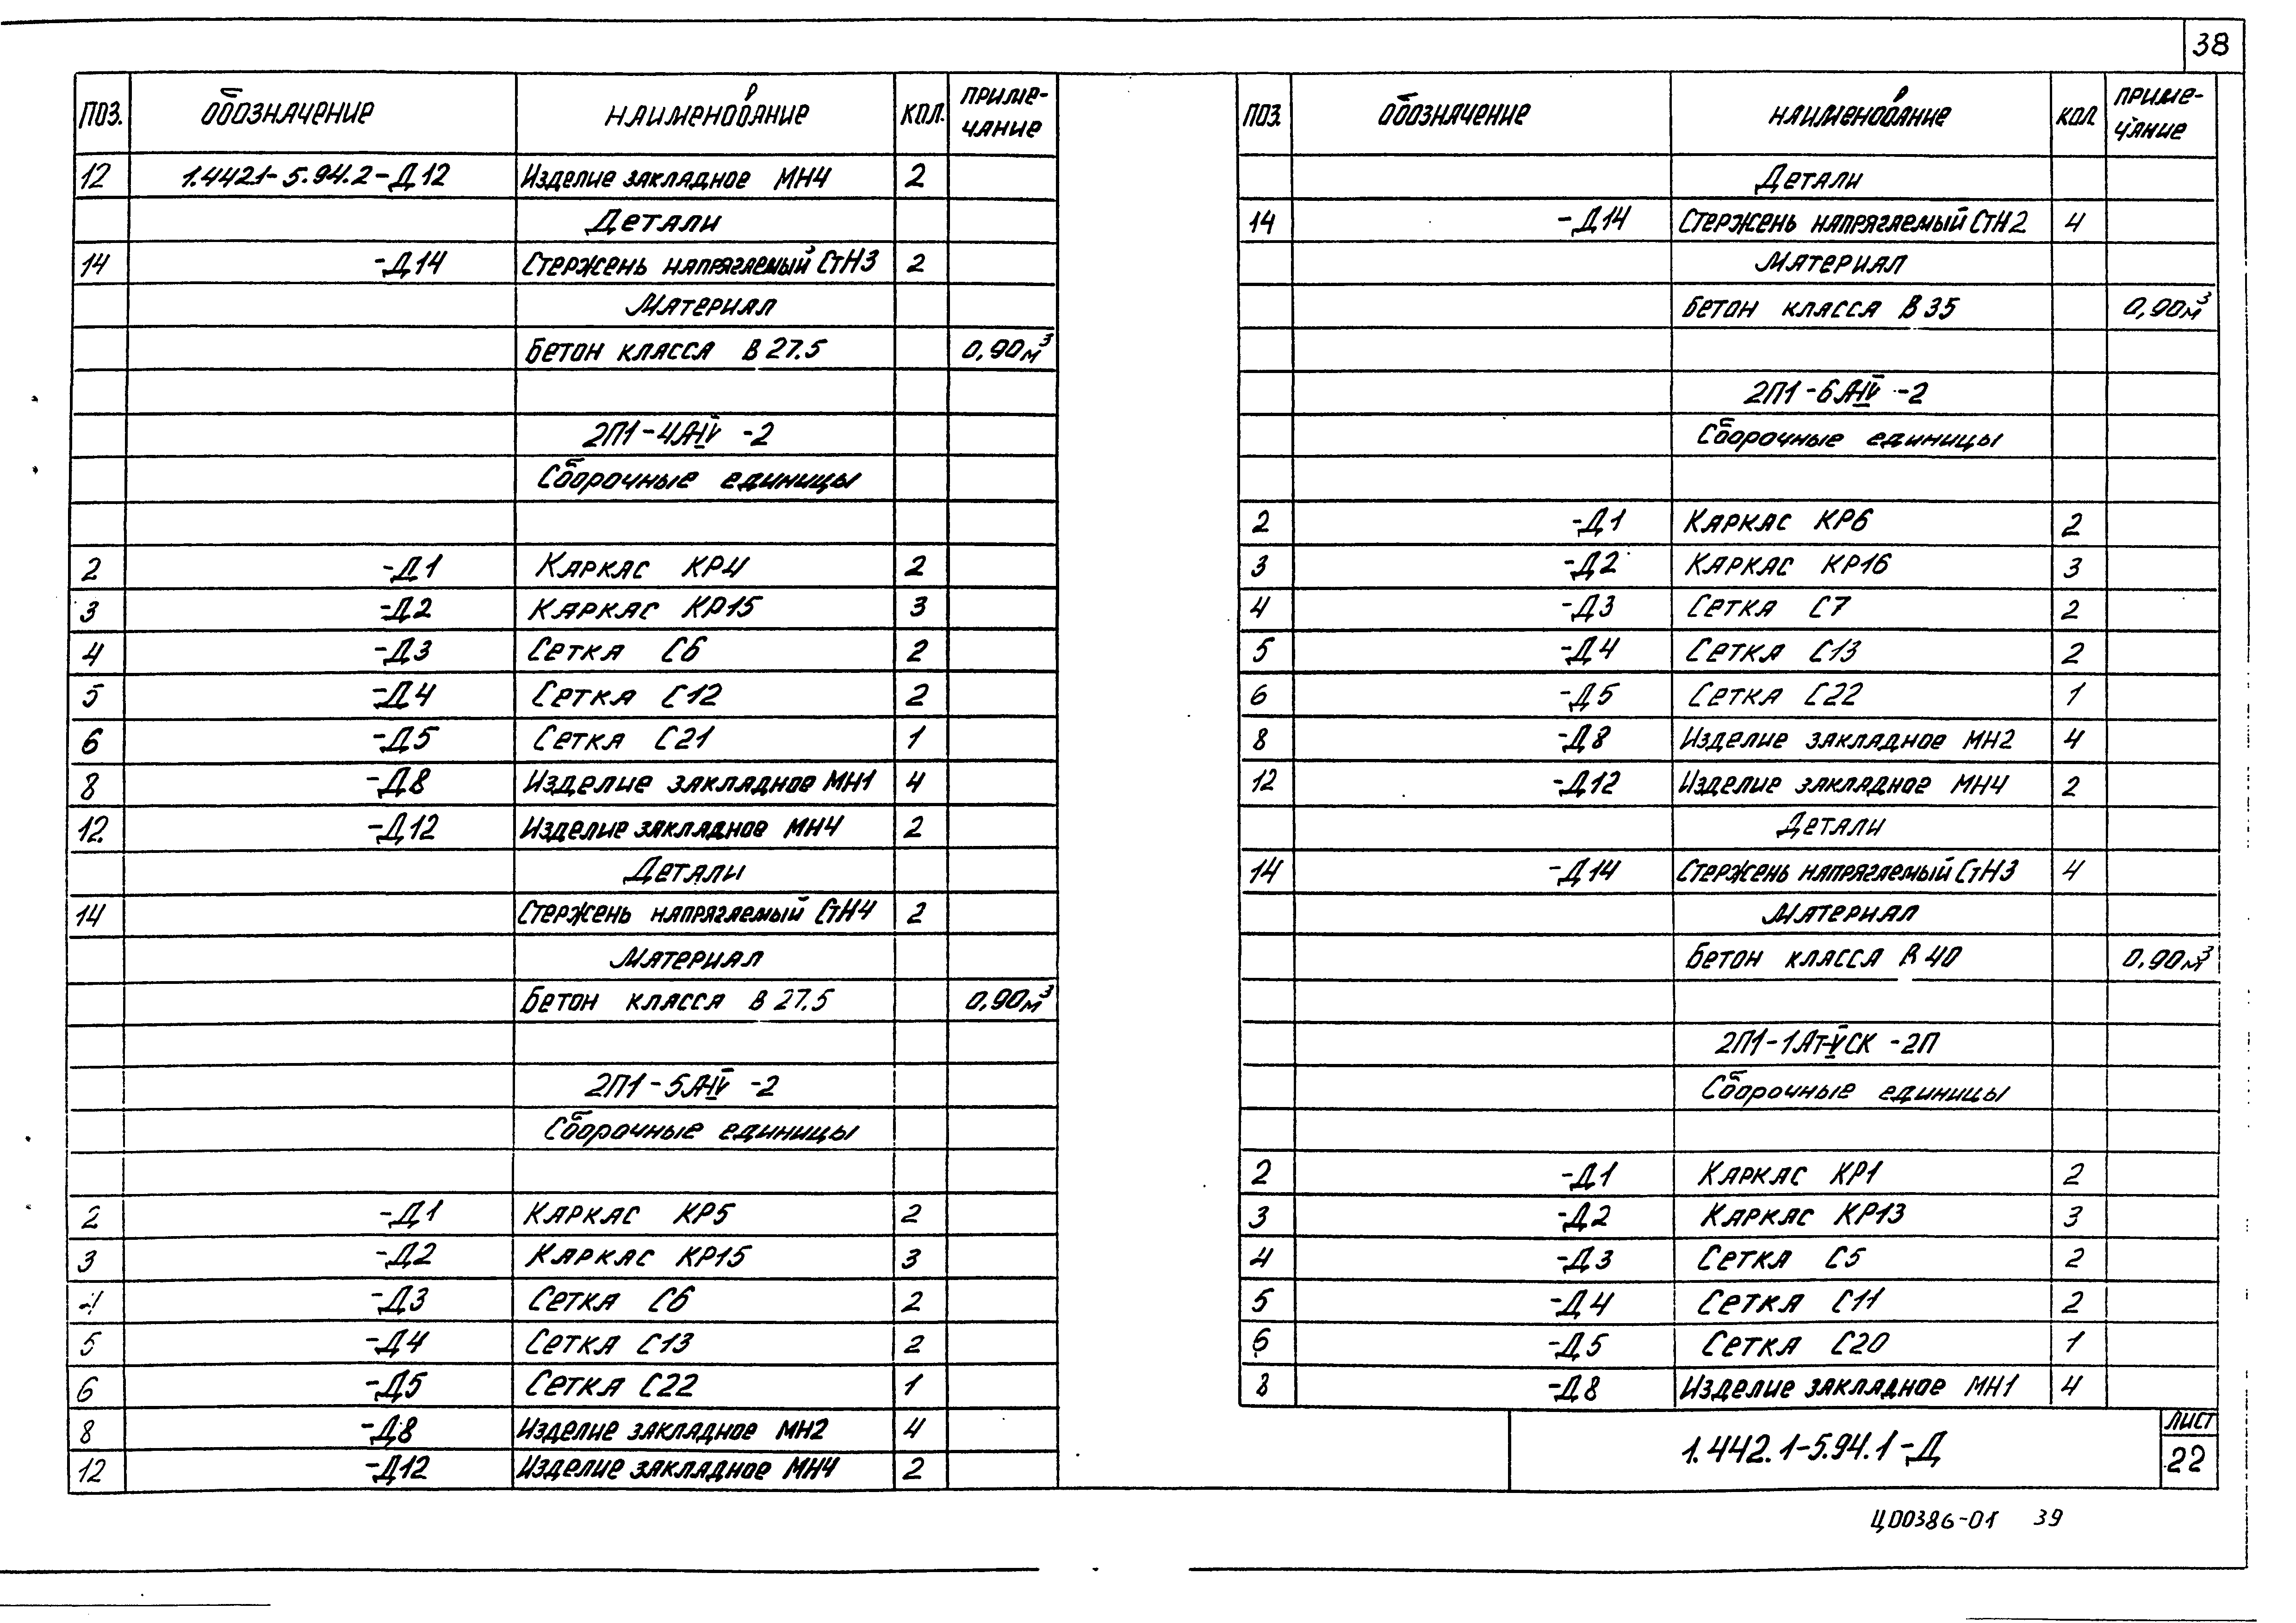 38
ПОЗ. ОБОЗНАЧЕНИЕ НАИМЕНОВАНИЕ КОЛ. ПРИМЕ-
ЧАНИЕ
12 1.442.1-5.94.2-Д12 Изделие закладное МН4 2
Детали
14 -Д14 Стержень напрягаемый СтН3 2
Материал
Бетон класса В 27.5 0,90м³
2П1-4АIV -2
Сборочные единицы
2 -Д1 Каркас КР4 2
3 -Д2 Каркас КР15 3
4 -Д3 Сетка С6 2
5 -Д4 Сетка С12 2
6 -Д5 Сетка С21 1
8 -Д8 Изделие закладное МН1 4
12. -Д12 Изделие закладное МН4 2
Детали
14 Стержень напрягаемый СтН4 2
Материал
Бетон класса В 27.5 0,90м³
2П1-5АIV -2
Сборочные единицы
2 -Д1 Каркас КР5 2
3 -Д2 Каркас КР15 3
4 -Д3 Сетка С6 2
5 -Д4 Сетка С13 2
6 -Д5 Сетка С22 1
8 -Д8 Изделие закладное МН2 4
12 -Д12 Изделие закладное МН4 2
ПОЗ. ОБОЗНАЧЕНИЕ НАИМЕНОВАНИЕ КОЛ. ПРИМЕ-
ЧАНИЕ
Детали
14 -Д14 Стержень напрягаемый СтН2 4
Материал
Бетон класса В 35 0,90м³
2П1-6АIV -2
Сборочные единицы
2 -Д1 Каркас КР6 2
3 -Д2 Каркас КР16 3
4 -Д3 Сетка С7 2
5 -Д4 Сетка С13 2
6 -Д5 Сетка С22 1
8 -Д8 Изделие закладное МН2 4
12 -Д12 Изделие закладное МН4 2
Детали
14 -Д14 Стержень напрягаемый СтН3 4
Материал
Бетон класса В 40 0,90м³
2П1-1Ат-VСК -2П
Сборочные единицы
2 -Д1 Каркас КР1 2
3 -Д2 Каркас КР13 3
4 -Д3 Сетка С5 2
5 -Д4 Сетка С11 2
6 -Д5 Сетка С20 1
8 -Д8 Изделие закладное МН1 4
1.442.1-5.94.1-Д
ЛИСТ
22
Ц00386-01 39